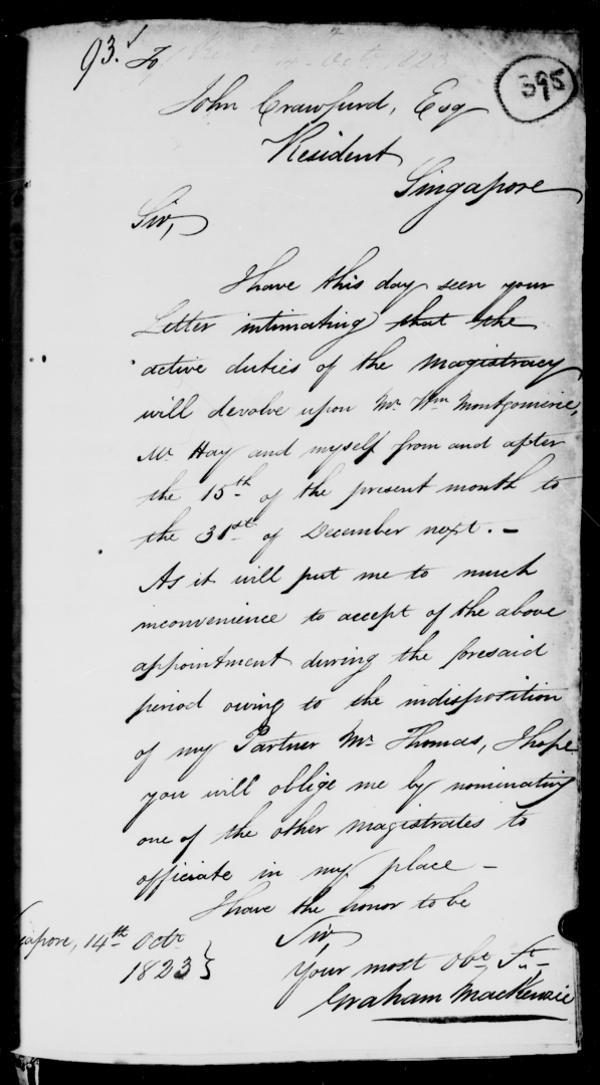 93.
395
To
John Crawfurd, Esq
Resident
Singapore
Sir,
I have this day seen your
Letter intimating that the
active duties of the magistracy
will devolve upon Mr. Wm Montgomerie,
Mr. Hay and myself from and after
the 15th of the present month to
the 31st of December next. -
As it will put me to much
inconvenience to accept of the above
appointment during the foresaid
period owing to the indisposition
of my Partner Mr. Thomas, I hope
you will oblige me by nominating
one of the other magistrates to
officiate in my place -
I have the honor to be
Sir
Your most Obt. St. -
Graham MacKenzie
gapore, 14th Octr
1823 }